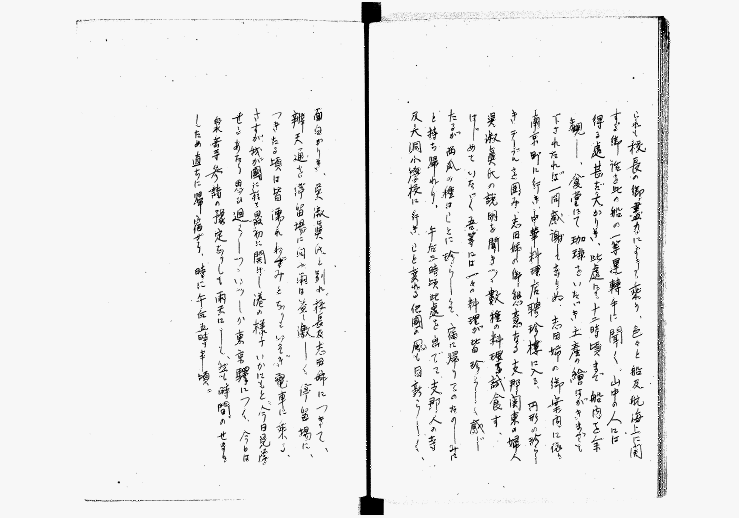 これも校長の御盡力によりて乗り、色々と船及航海上に関
する御話を此の船の一等運轉手に聞く、山中の人には
得る處甚だ大なりき、此處にて十二時頃まで船内を参
観し、食堂にて珈琲をいたゞき土産の繪はがきまで
下されたれば一同感謝して去りぬ、志田姉の御案内に依り
南京町に行き中華料理店聘珍樓に入る、円形の珍らし
きテーブルを囲み志田姉の御懇意なる支那関東の婦人
吳淑貞氏の説明を聞きつゝ數種の料理を試食す、
はじめていたゞく吾等には一々の料理が皆珍らしく感じ
たるが西瓜の種はことに珍らしく、宿に帰りてのたのしみに
と持ち帰れり、午后二時頃此處を出でて支那人の寺
及大同小學校に行きしこと変れる他國の風も目新らしく、
面白かりき、吳淑貞氏と別れ校長及志田姉につきて、
辨天通り停留場に向ふ雨は益々激しく停留場に、
つきたる頃は皆濡れねずみとなりていそぎ電車に乗る、
さすが我が國に於て最初に開けし港の様子いかにもと、今日見學
せるあたり思ひ廻らしつゝいつしか東京驛につく、今日は
泉岳寺参詣の豫定なりしも雨天にして、且つ時間のせまり
しため直ちに帰宿せり、時に午后五時半頃。